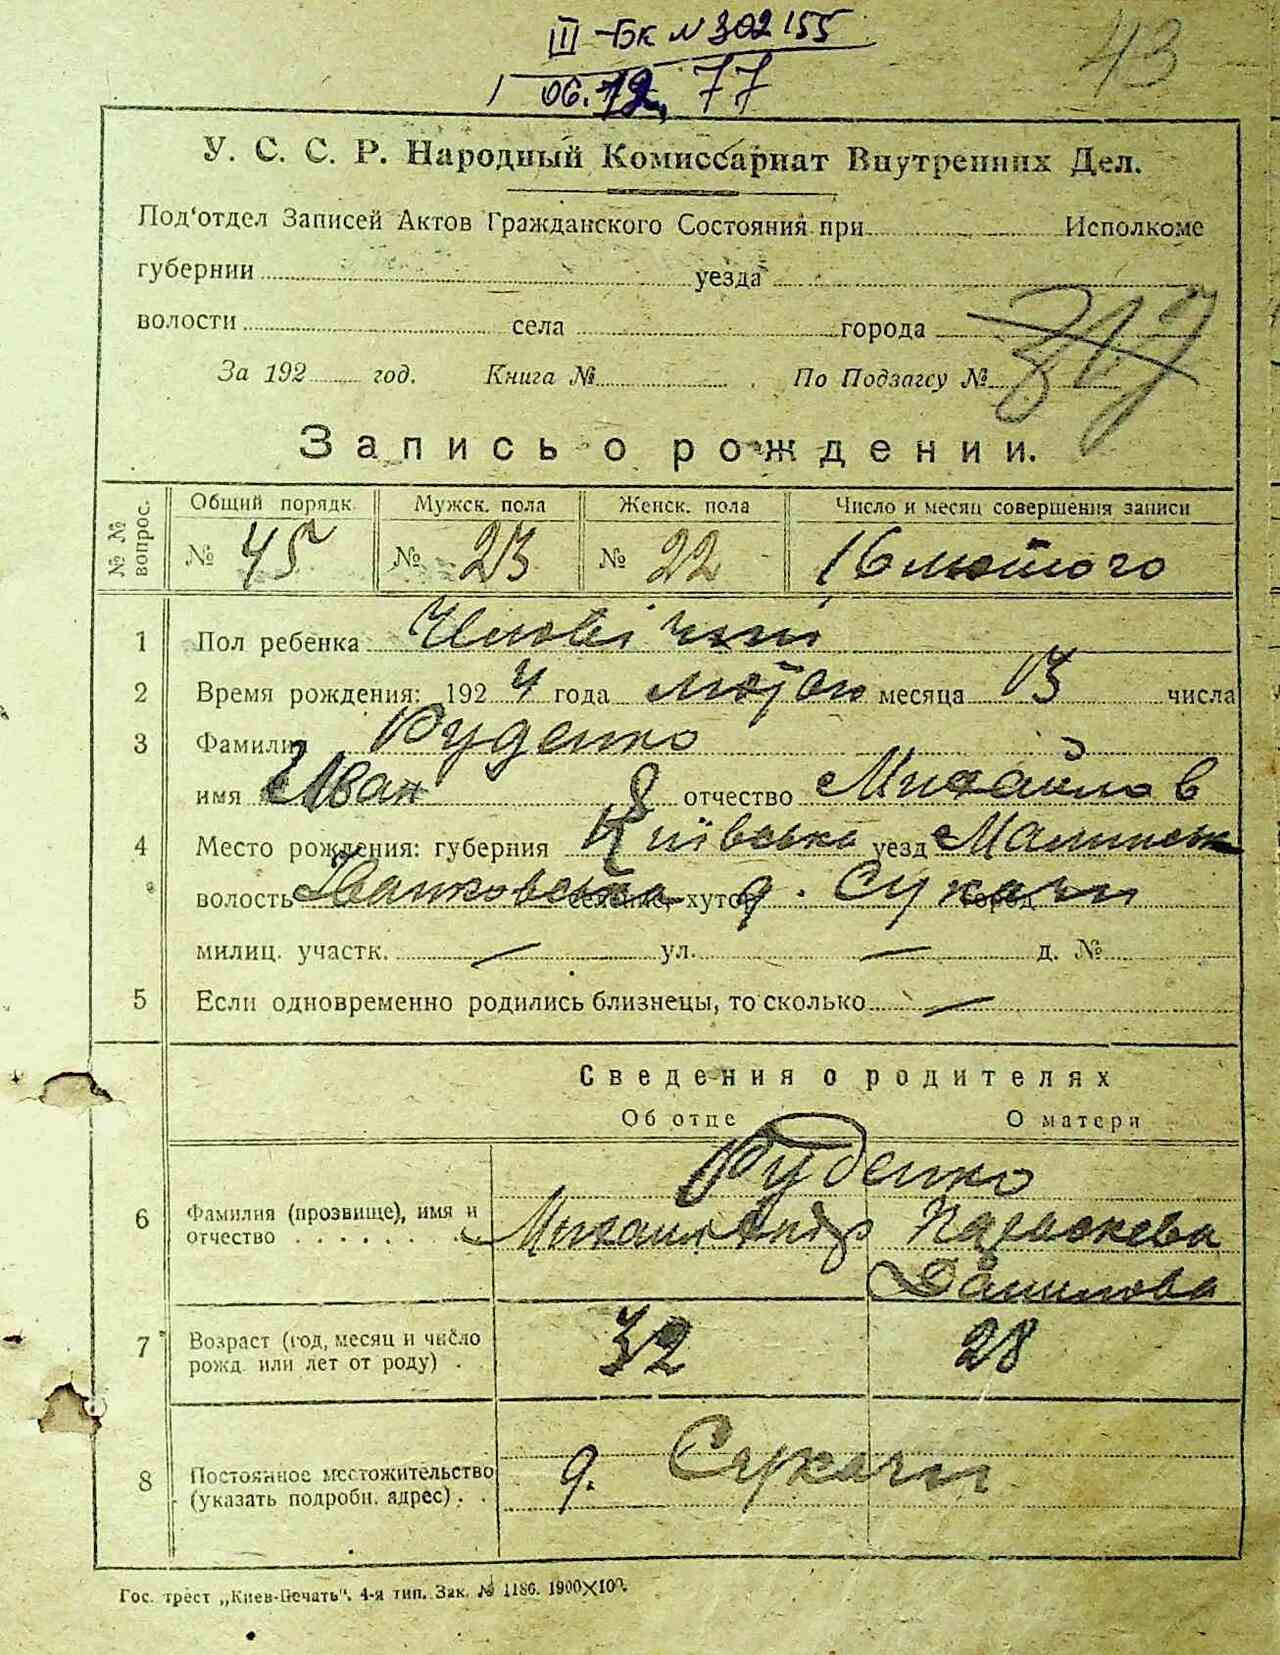 III-БК № 302155
06.12.77
43
У. С. С. Р. Народный Комиссариат Внутренних Дел.
Под'отдел Записей Актов Гражданского Состояния при Исполкоме
губернии уезда
волости села города
За 192 год. Книга № По Подзагсу №
Запись о рождении.
№ № вопрос. Общий порядк. Мужск. пола Женск. пола Число и месяц совершения записи
№ 45 № 23 № 22 16 лютого
1 Пол ребенка Чоловічий
2 Время рождения: 1924 года лютого месяца 13 числа
3 Фамилия Руденко
имя Иван отчество Михайлов
4 Место рождения: губерния Київська уезд Малинськ
волость Іванковська селение, хутор д. Сукачи город
милиц. участк. — ул. — д. №
5 Если одновременно родились близнецы, то сколько —
Сведения о родителях
Об отце О матери
Руденко
6 Фамилия (прозвище), имя и отчество Михаил Андр Параскева
Данилова
7 Возраст (год, месяц и число рожд. или лет от роду) 32 28
8 Постоянное местожительство (указать подробн. адрес) д. Сукачи
Гос. трест „Киев-Печать". 4-я тип. Зак. № 1186. 1900×100.